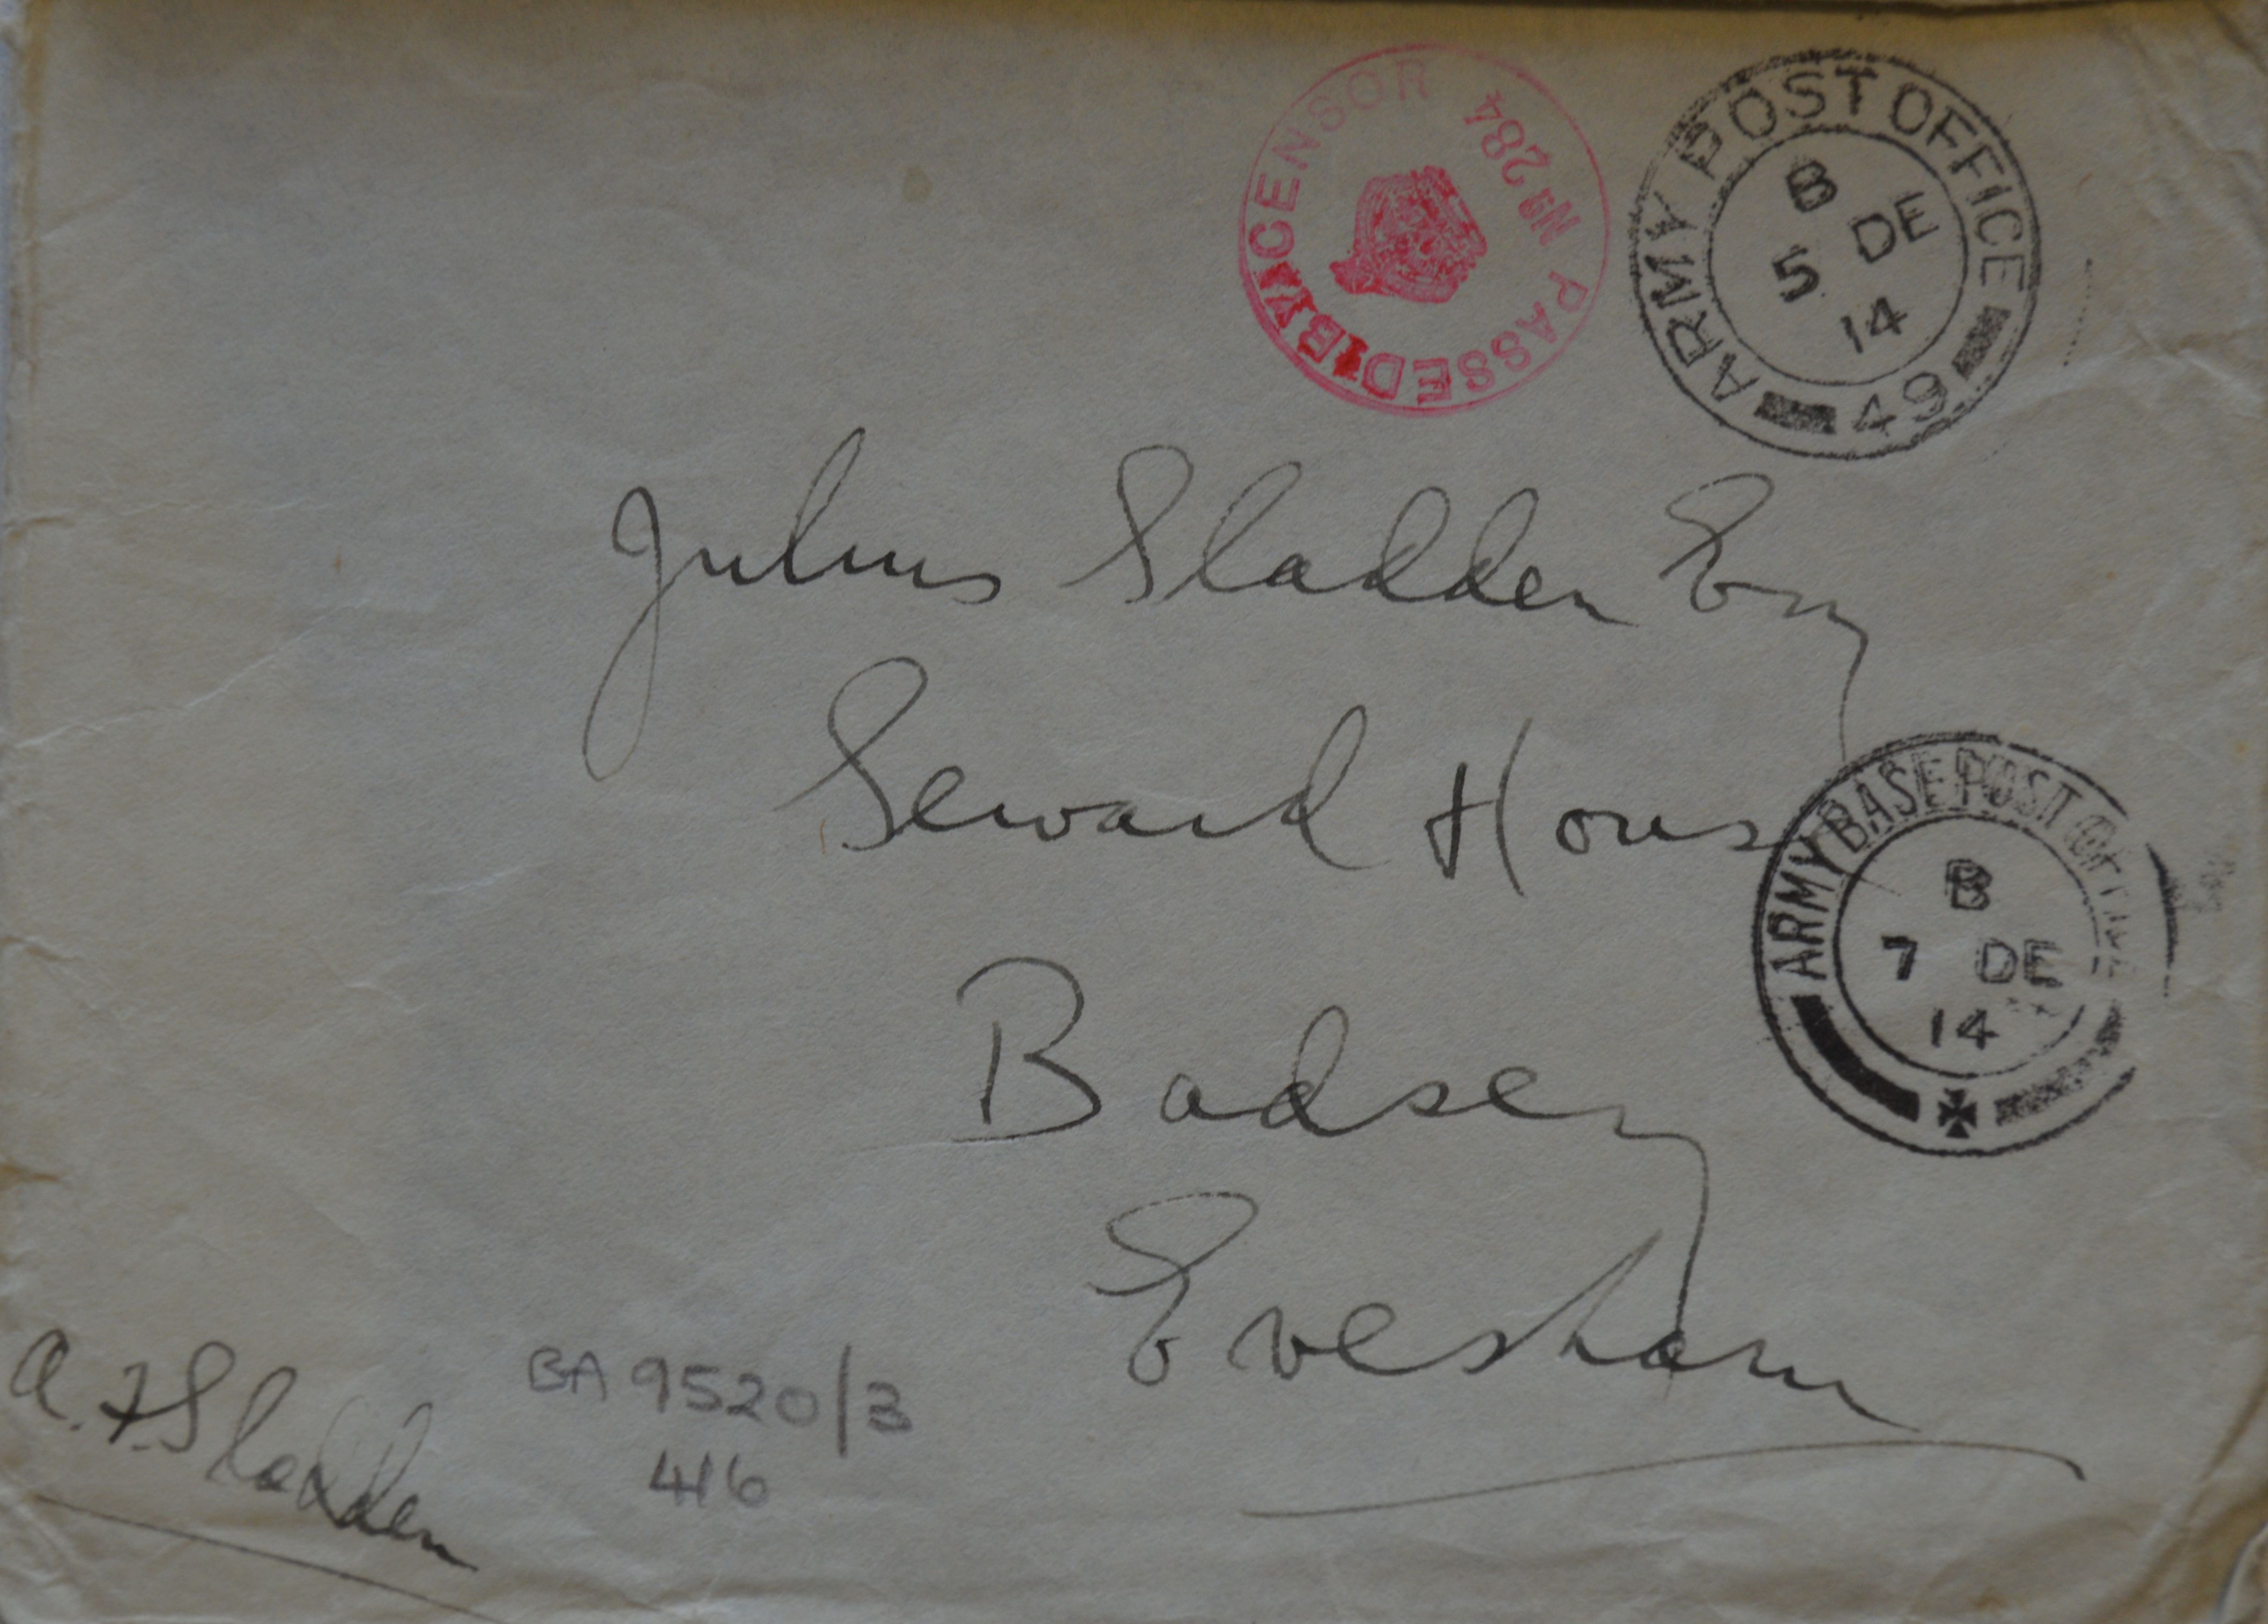 PASSED BY CENSOR
Nº 284
ARMY POST OFFICE
B
5 DE
14
49
Julius Sladden Esq
Seward House
ARMY BASE POST OFFICE
B
7 DE
14
Badsey
Evesham
A. F. Sladden
BA 9520/3
416